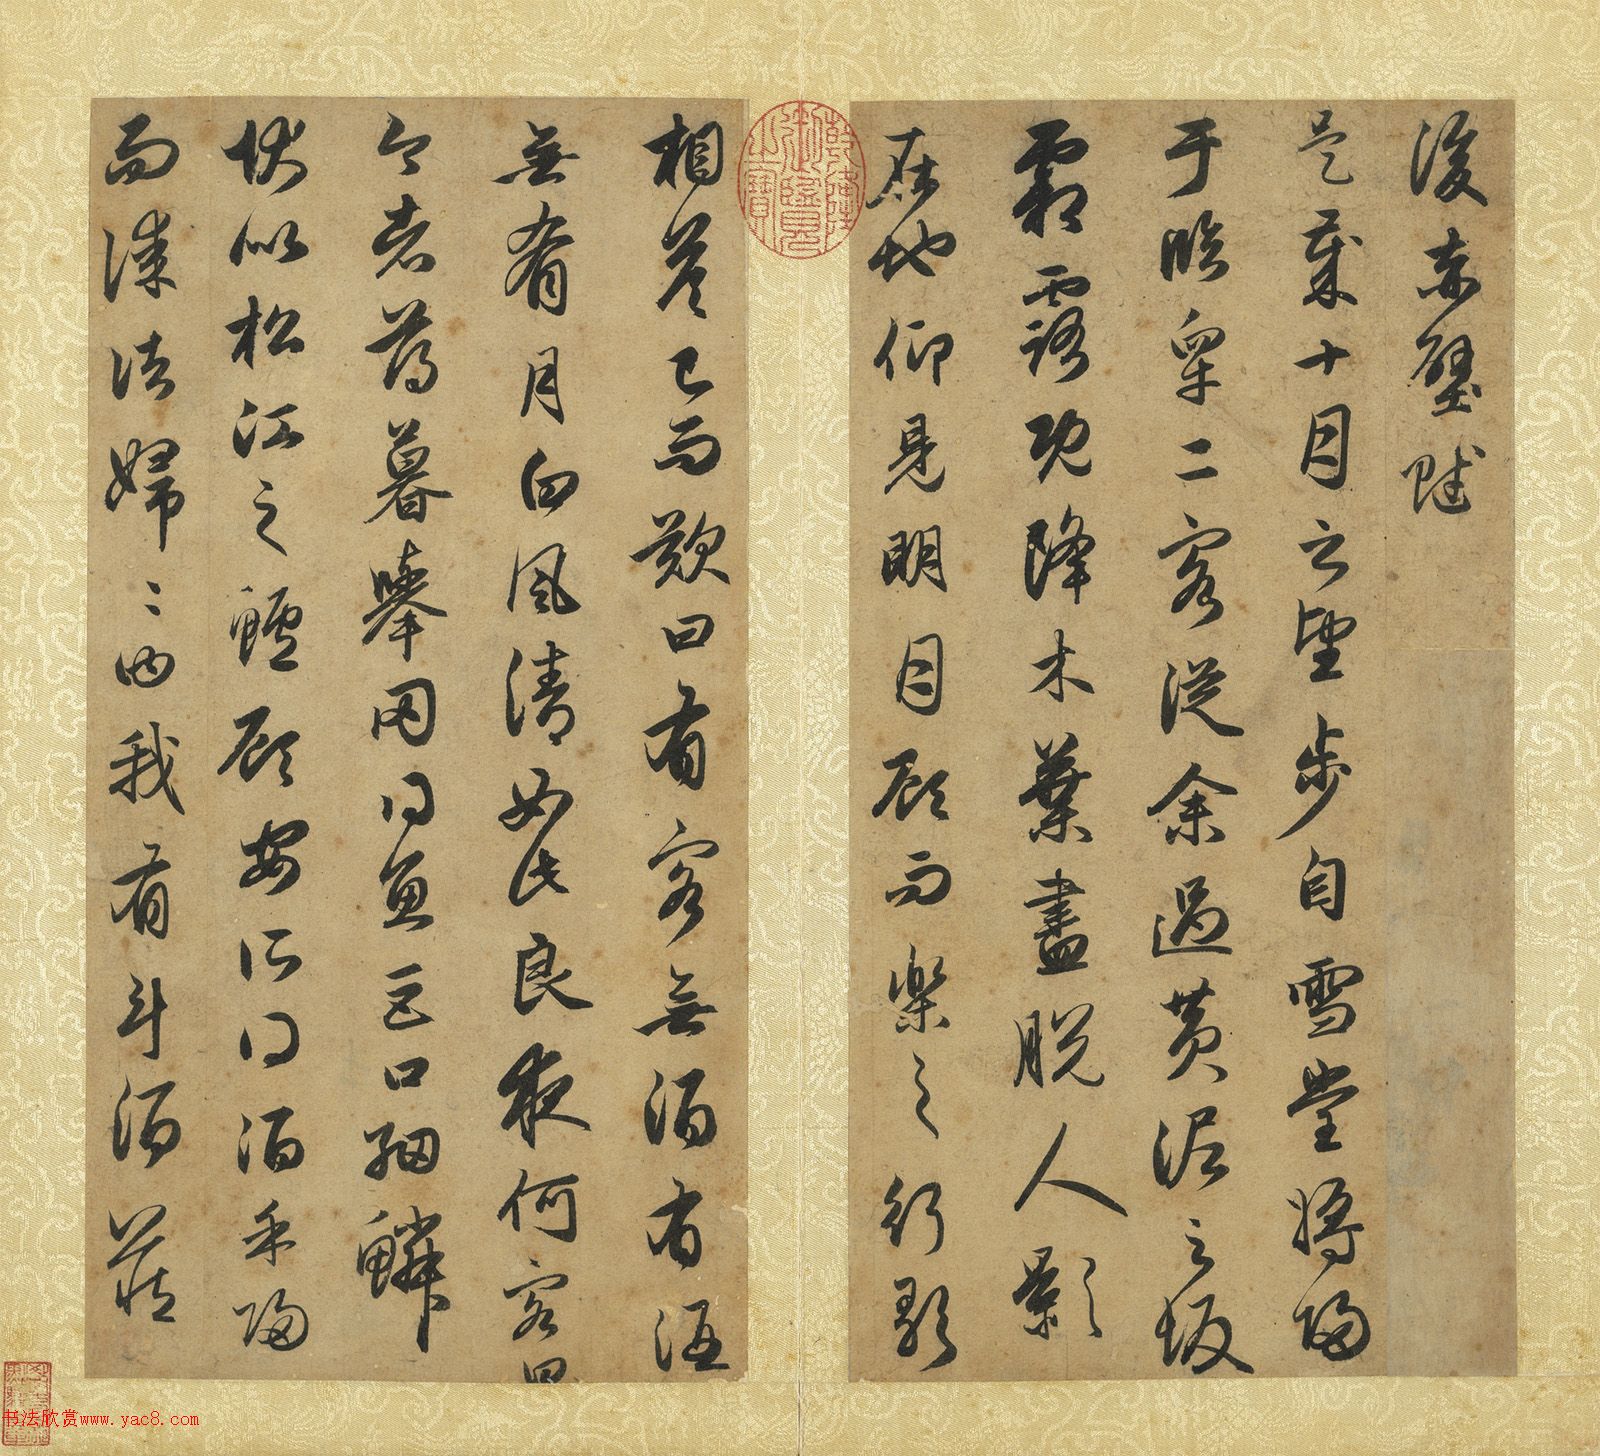 後赤壁賦
是歲十月之望步自雪堂將歸
于臨皋二客從余過黃泥之坂
霜露既降木葉盡脫人影
在地仰見明月顧而樂之行歌
相答已而歎曰有客無酒有酒
無肴月白風清如此良夜何客曰
今者薄暮舉网得魚巨口細鱗
狀似松江之鱸顧安所得酒乎歸
而謀諸婦〻曰我有斗酒藏
乾隆御覽之寶
书法欣赏www.yac8.com